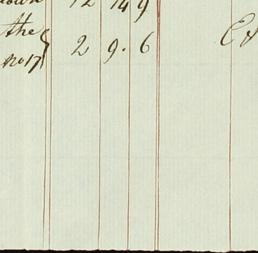 12 14 9
the
2 9. 6
No 17